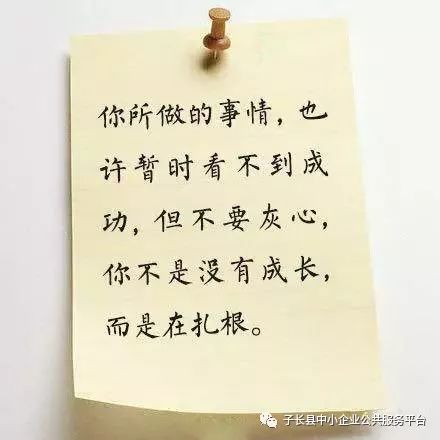 你所做的事情，也
许暂时看不到成
功，但不要灰心，
你不是没有成长，
而是在扎根。
子长县中小企业公共服务平台